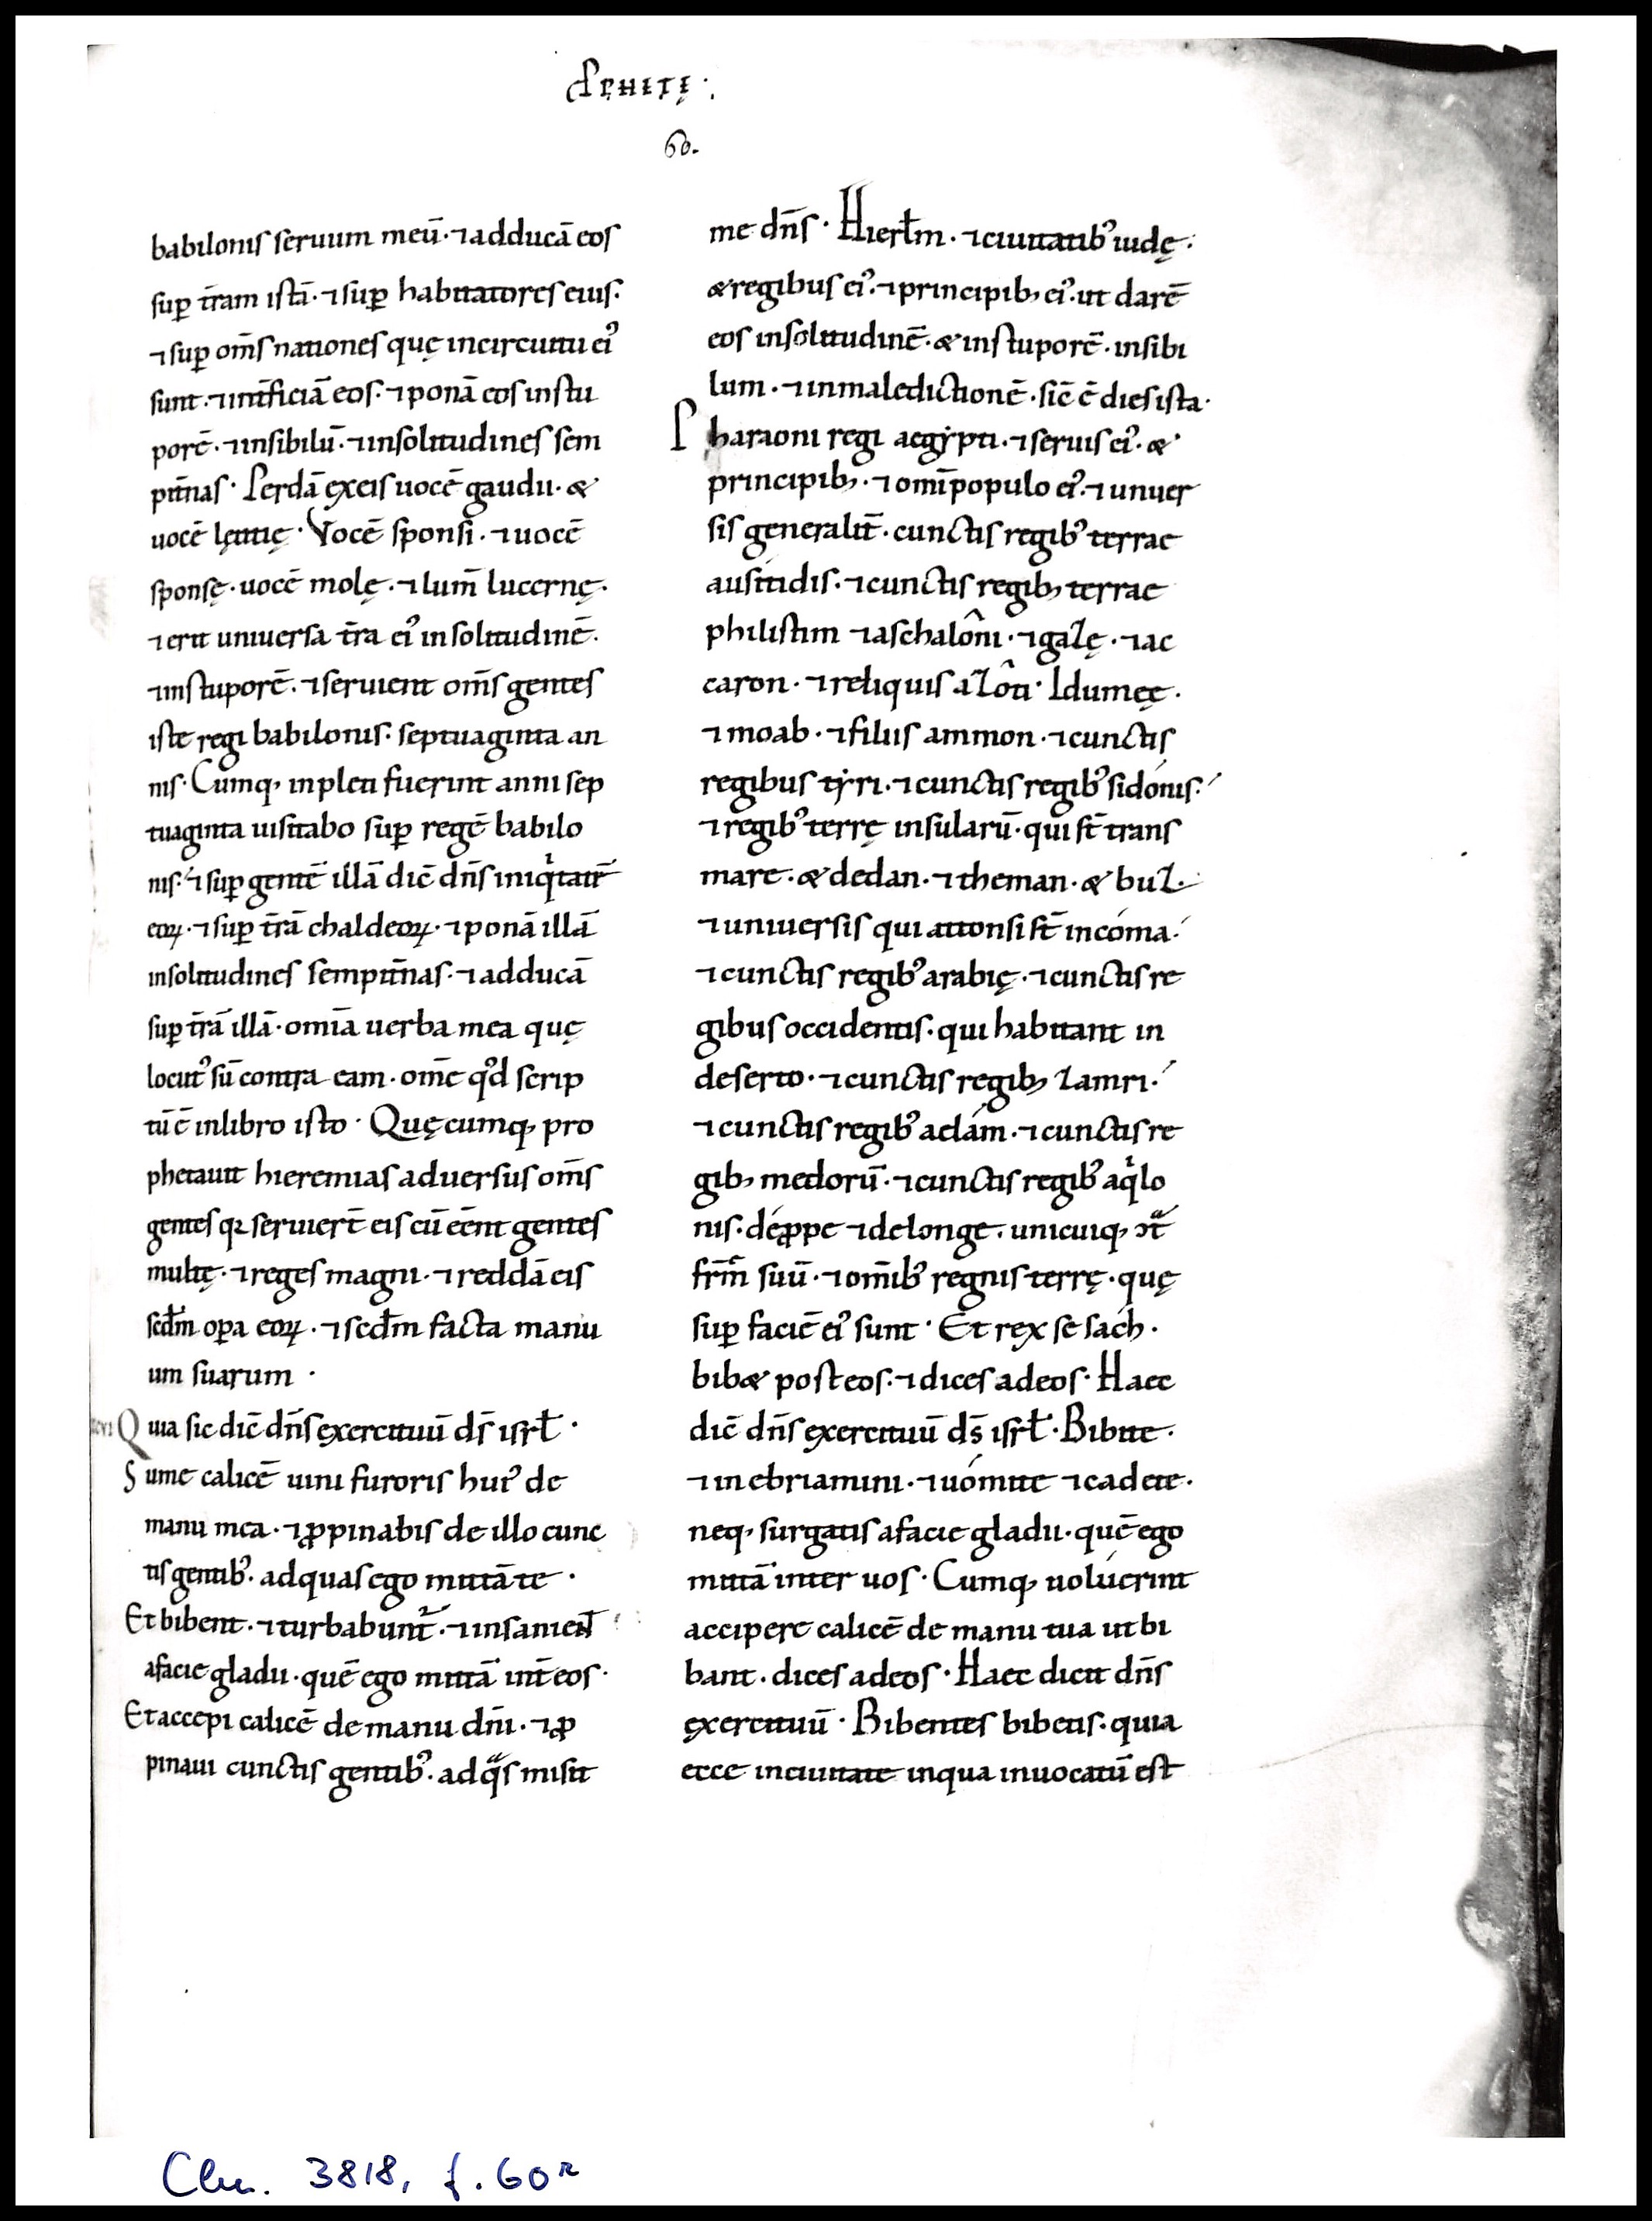 60.
babilonis seruum meū· ⁊ adducā eos
suꝑ t̄ram istā· ⁊ suꝑ habitatores eius·
⁊ suꝑ om̄s nationes quę in circuitu eiꝰ
sunt· ⁊ int̄ficiā eos· ⁊ ponā eos in stu
porē· ⁊ in sibilū· ⁊ in solitudines sem
pit̄nas· Perdā ex eis uocē gaudii· &
uocē lętitię· Vocē sponsi· ⁊ uocē
sponsę· uocē molę· ⁊ lum̄ lucernę·
⁊ erit uniuersa t̄ra eiꝰ in solitudinē·
⁊ in stuporē· ⁊ seruient om̄s gentes
iste regi babilonis· septuaginta an
nis· Cumq, inpleti fuerint anni sep
tuaginta uisitabo suꝑ regē babilo
nis· ⁊ suꝑ gentē illā dic̄ dn̄s iniqͥtatē
eoꝝ· ⁊ suꝑ t̄rā chaldeoꝝ· ⁊ ponā illā
in solitudines sempit̄nas· ⁊ adducā
suꝑ t̄rā illā· omīa uerba mea quę
locutꝰ sū contra eam· om̄e qd̓ scrip
tū ē in libro isto· Quęcumq, pro
phetauit hieremias aduersus om̄s
gentes qꝛ seruier̄t eis cū eēnt gentes
multę· ⁊ reges magni· ⁊ reddā eis
scd̄m oꝑa eoꝝ· ⁊ scd̄m facta manu
um suarum ·
Quia sic dic̄ dn̄s exercituū ds̄ isrł ·
Sume calicē uini furoris huiꝰ de
manu mea· ⁊ ꝓpinabis de illo cunc
tis gentibꝰ· ad quas ego mittā te ·
Et bibent· ⁊ turbabunt̄· ⁊ insanient
a facie gladii· quē ego mittā int̄ eos·
Et accepi calicē de manu dn̄i· ⁊ ꝓ
pinaui cunctis gentibꝰ· ad qᵃs misit
me dn̄s· Hierłm· ⁊ ciuitatibꝰ iudę·
& regibus eiꝰ· ⁊ principib, eiꝰ· ut darē
eos in solitudinē· & in stuporē· in sibi
lum· ⁊ in maledictionē· sic̄ ē dies ista·
Pharaoni regi aegẏpti· ⁊ seruis eiꝰ· &
principib,· ⁊ omī populo eiꝰ· ⁊ uniuer
sis generalit̄· cunctis regibꝰ terrae
ausitidis· ⁊ cunctis regib, terrae
philistim ⁊ aschalôni· ⁊ gazę· ⁊ ac
caron· ⁊ reliquis azôti· Idumeę·
⁊ moab· ⁊ filiis ammon· ⁊ cunctis
regibus tẏri· ⁊ cunctis regibꝰ sidónis·
⁊ regibꝰ terrę insularū· qui st̄ trans
mare· & dedan· ⁊ theman· & buz·
⁊ uniuersis qui attonsi st̄ in cóma·
⁊ cunctis regibꝰ arabię· ⁊ cunctis re
gibus occidentis· qui habitant in
deserto· ⁊ cunctis regib, zamri·
⁊ cunctis regibꝰ aelám· ⁊ cunctis re
gib, medorū· ⁊ cunctis regibꝰ aqͥlo
nis· de ꝓpe ⁊ de longe· unicuiq, ↄtᵃ
frēm suū· ⁊ om̄ibꝰ regnis terrę· quę
suꝑ faciē eiꝰ sunt· Et rex sesách·
bib& post eos· ⁊ dices ad eos· Haec
dic̄ dn̄s exercituū ds̄ isrł· Bibite·
⁊ inebriamini· ⁊ uómite ⁊ cadete·
neq, surgatis a facie gladii· quē ego
mittā inter uos· Cumq, nolúerint
accipere calicē de manu tua ut bi
bant· dices ad eos· Haec dicit dn̄s
exercituū· Bibentes bibetis· quia
ecce in ciuitate in qua inuocatū est
Clm. 3818, f. 60ʳ